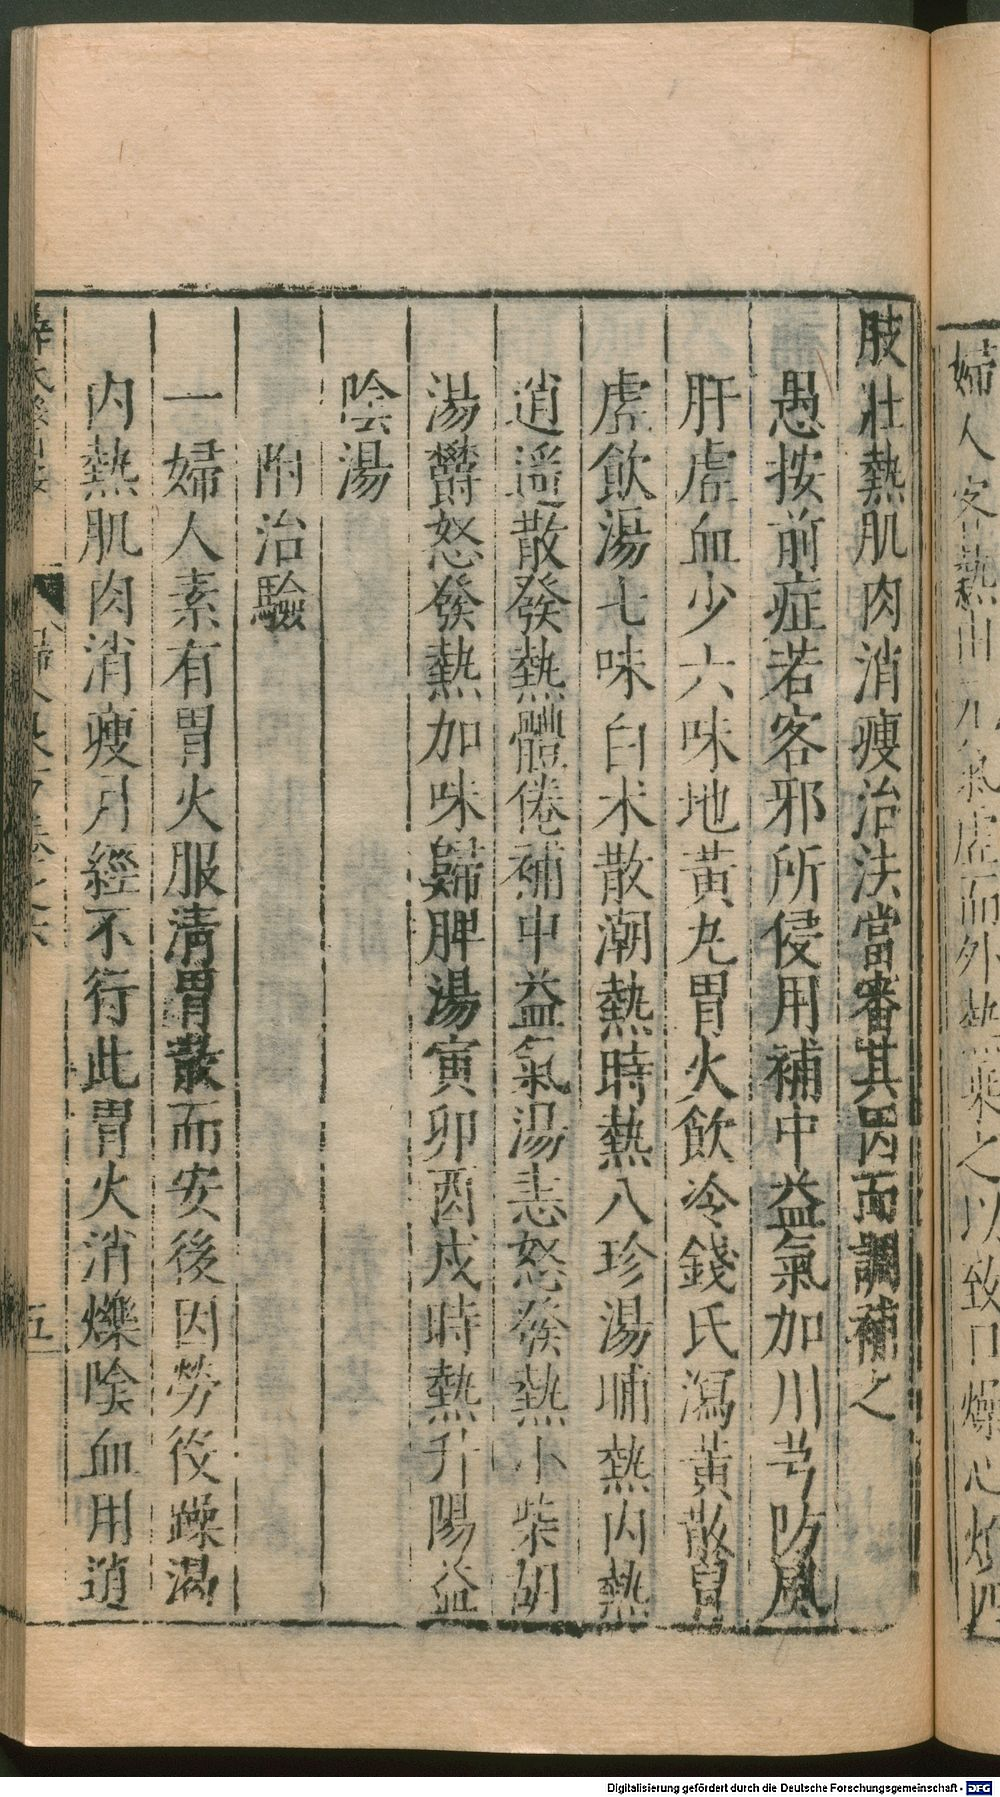 婦人客熱由元氣虛而外熱乘之以致口燥心煩四
肢壯熱肌肉消瘦治法當審其因而調補之
愚按前症若客邪所侵用補中益氣加川芎防風
肝虛血少六味地黃丸胃火飲冷錢氏瀉黃散胃
虛飲湯七味白朮散潮熱時熱八珍湯晡熱内熱
逍遥散發熱體倦補中益氣湯恚怒發熱小柴胡
湯欝怒發熱加味歸脾湯寅卯酉戍時熱升陽益
陰湯
附治驗
一婦人素有胃火服清胃散而安後因勞役躁渴
内熱肌肉消瘦月經不行此胃火消爍陰血用逍
五
Digitalisierung gefördert durch die Deutsche Forschungsgemeinschaft - DFG